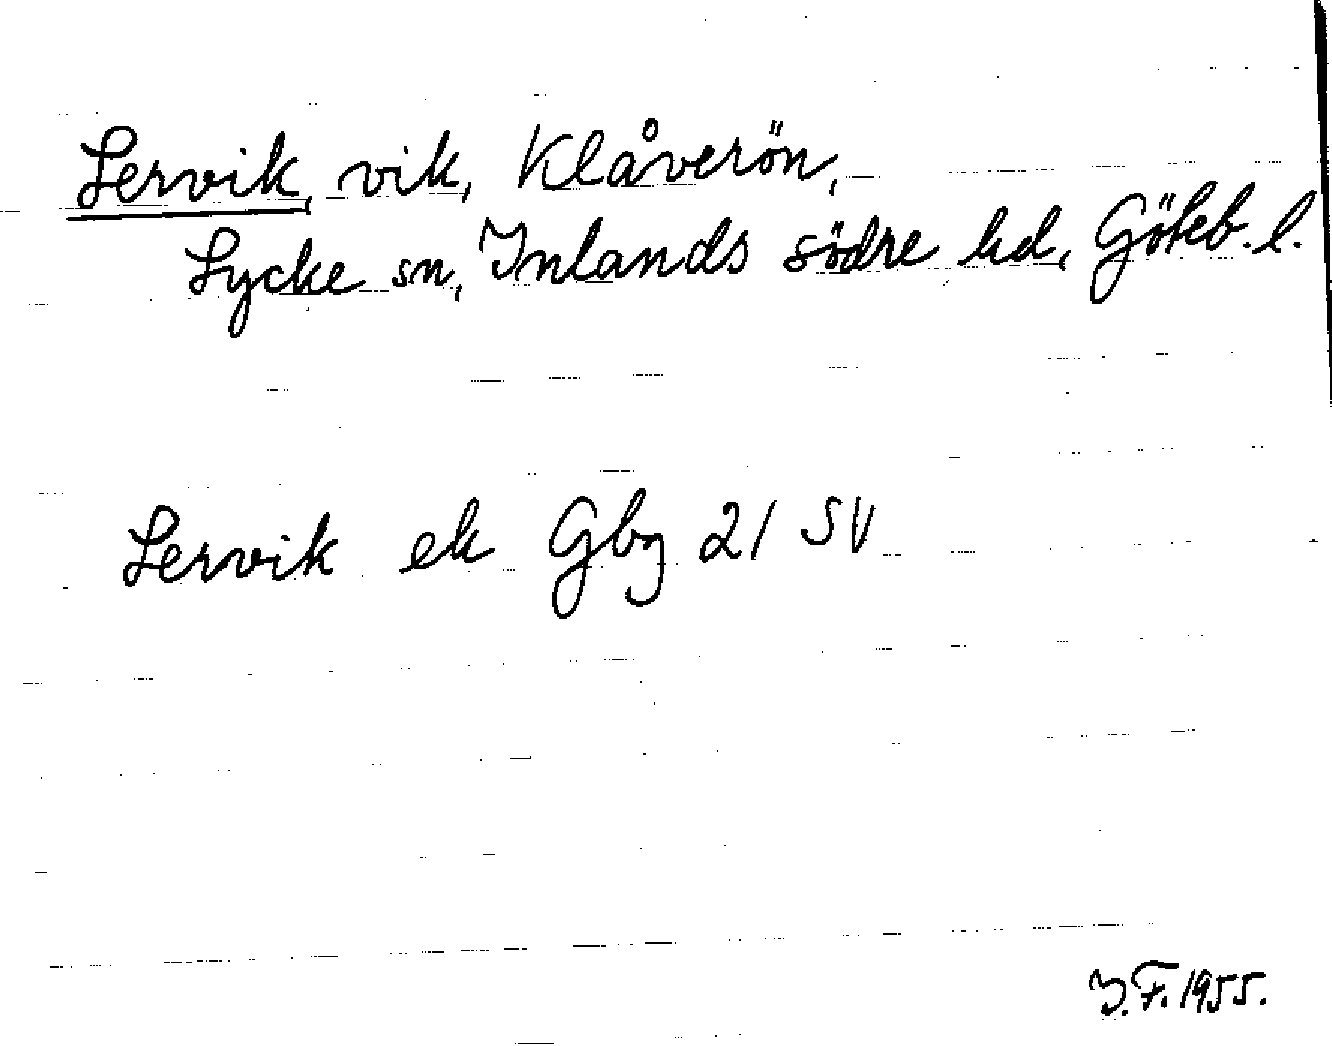 Lervik, vik, Klåverön,
Lycke sn, Inlands södre hd, Göteb. l.
Lervik ek Gbg 21 SV
I.F. 1955.